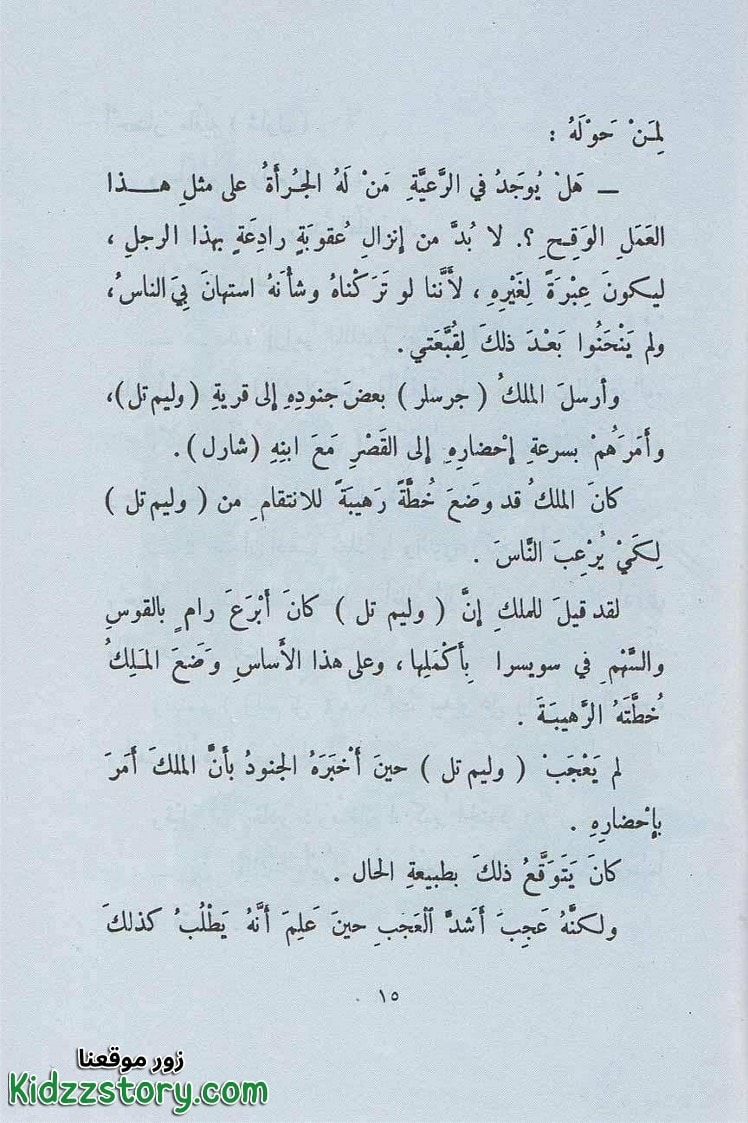 لِمَنْ حَوْلَهُ :
ـ هَلْ يُوجَدُ في الرَّعيَّةِ مَنْ لَهُ الجُرأَةُ على مثلِ هــــذا
العَمَلِ الوَقِـحِ ؟. لا بُدَّ من إنزالِ عُقوبَةٍ رادِعَةٍ بهذا الرجلِ ،
ليكونَ عِبْرَةً لِغَيْرِهِ ، لأَنَّنا لو تَرَكْناهُ وشأنَهُ استهانَ بِيَ الناسُ،
ولم يَنْحَنُوا بَعْدَ ذلكَ لِقُبَّعَتي.
وأرسلَ الملكُ ( جرسلر ) بعضَ جنودِهِ إلى قريةِ ( وليم تل )،
وأَمَرَهُمْ بسرعةِ إحْضارِهِ إلى القَصْرِ مَعَ ابنِهِ ( شارل ) .
كانَ الملكُ قد وضَعَ خُطَّةً رَهيبَةً للانتقامِ من ( وليم تل )
لِكَيْ يُرْعِبَ النَّاسَ .
لقد قيلَ للملكِ إنَّ ( وليم تل ) كانَ أَبْرَعَ رامٍ بالقوسِ
والسَّهْمِ في سويسرا بِأَكْمَلِها ، وعلى هذا الأَساسِ وَضَعَ المَـلِكُ
خُطَّتَهُ الرَّهيبَـةَ .
لم يَعْجَبْ ( وليم تل ) حينَ أَخْبَرَهُ الجنودُ بأَنَّ الملكَ أَمَرَ
بإحْضارِهِ .
كانَ يَتَوَقَّعُ ذلكَ بطبيعةِ الحال .
ولكنَّهُ عَجِبَ أَشدَّ العَجَبِ حينَ عَلِمَ أَنَّهُ يَطْلُبُ كذلكَ
١٥
زور موقعنا
Kidzzstory.com